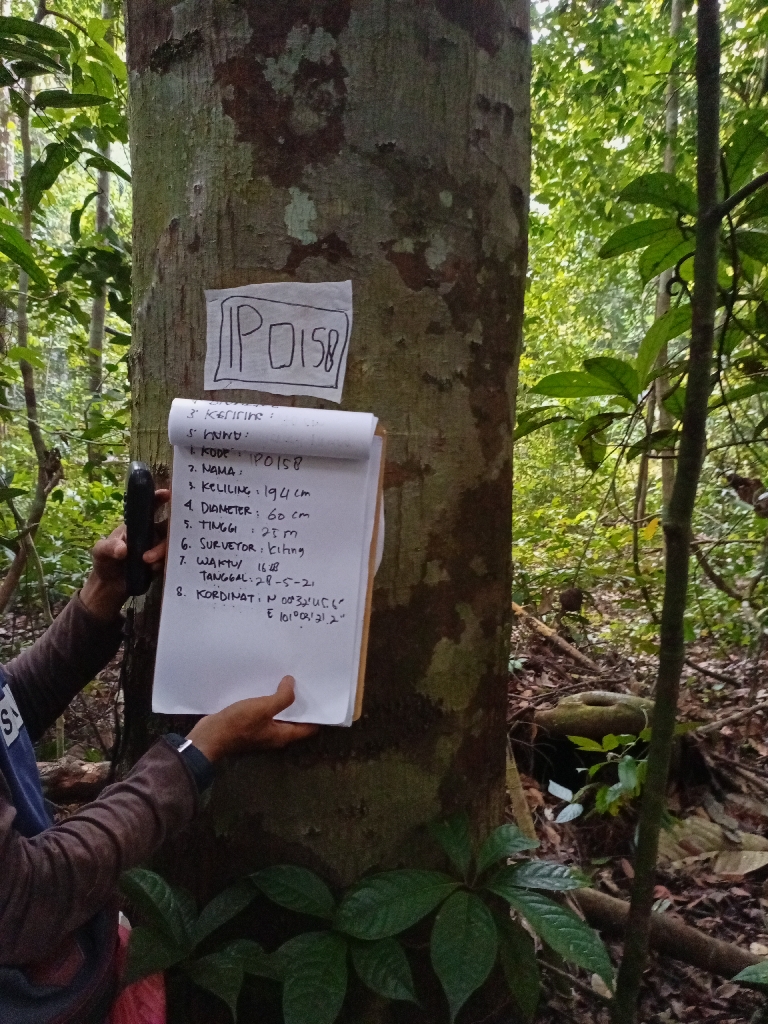 IP0158
3. KELILING:
1. KODE : IP0158
2. NAMA :
3. KELILING : 194 cm
4. DIAMETER : 60 cm
5. TINGGI : 25 m
6. SURVEYOR : Kiting
7. WAKTU/
TANGGAL : 28-5-21
8. KORDINAT : N 00°32'45.6"
E 101°03'21.2"